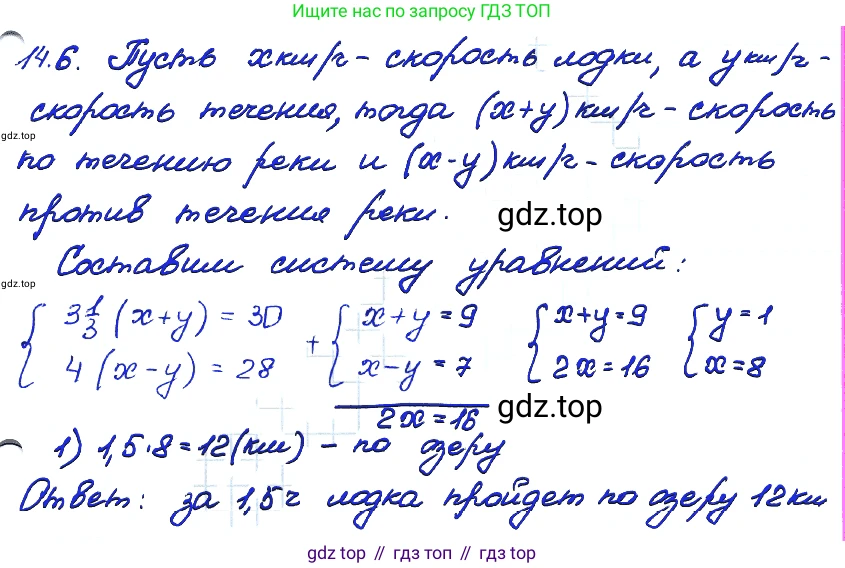 Ищите нас по запросу ГДЗ ТОП
14.6. Пусть x км/ч - скорость лодки, а y км/ч -
скорость течения, тогда (x+y) км/ч - скорость
gdz.top
по течению реки и (x-y) км/ч - скорость
против течения реки.
gdz.top
Составим систему уравнений:
gdz.top
{ 3 1/3 (x+y) = 30 + { x+y = 9 { x+y = 9 { y = 1
4 (x-y) = 28 x-y = 7 2x = 16 x = 8
2x = 16
gdz.top
1) 1,5·8 = 12 (км) - по озеру
Ответ: за 1,5 ч лодка пройдет по озеру 12 км
gdz top // гдз топ // gdz top